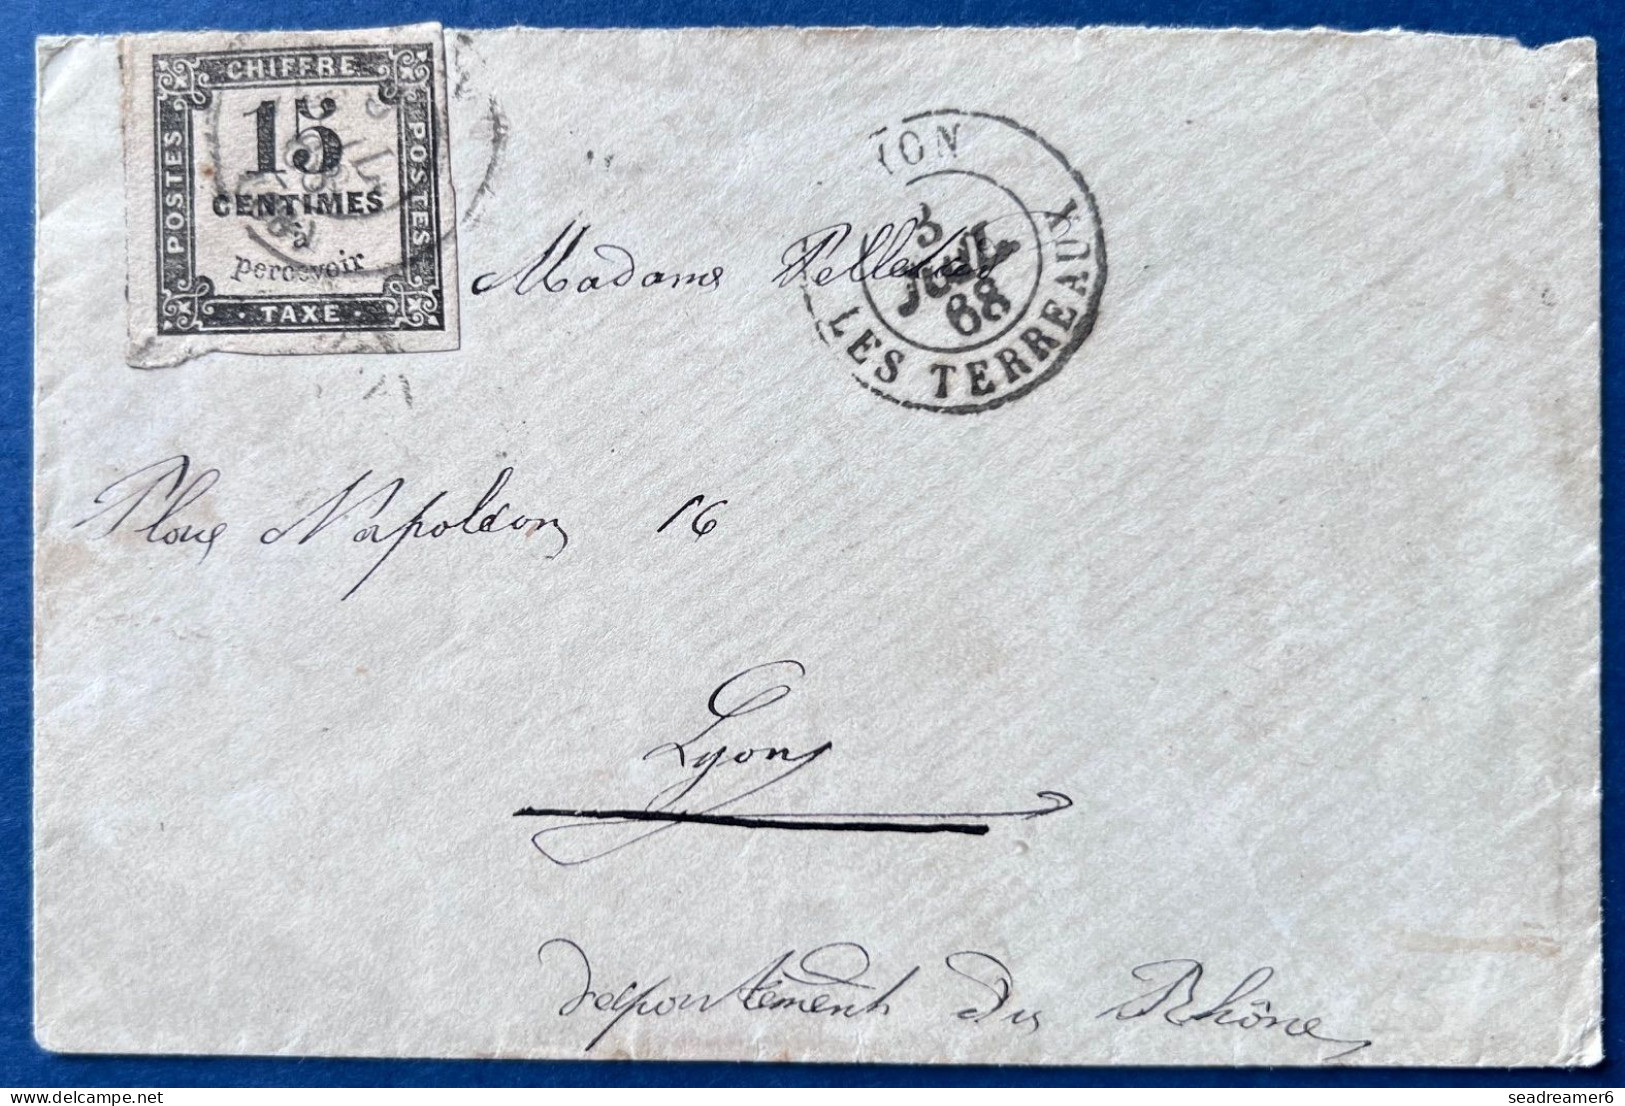 CHIFFRE
POSTES
15
CENTIMES
à
percevoir
POSTES
· TAXE ·
YON
3
JUIL
68
LES TERREAUX
Madame
Place Napoléon 16
Lyon
département du Rhône
www.delcampe.net
seadreamer6